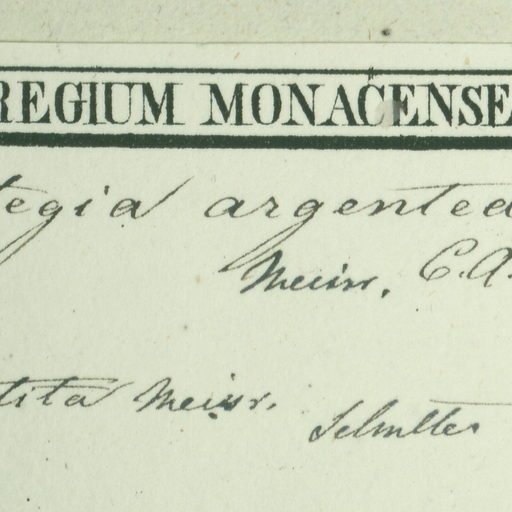 REGIUM MONACENSE
tegia argentea
Meisn. C.A.
tita Meisn. Schultes